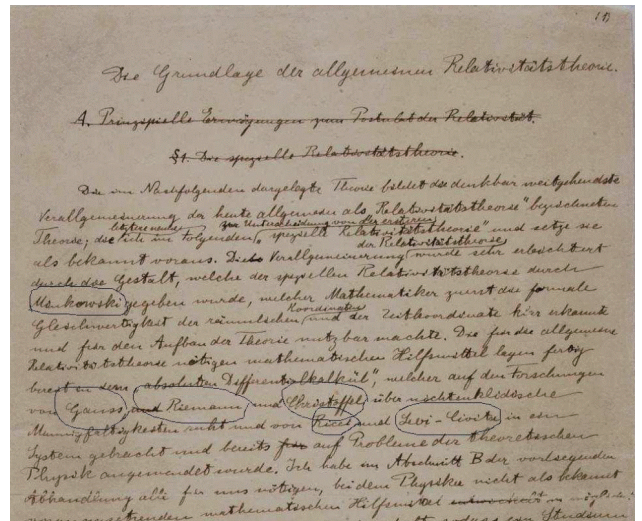 (1)
Die Grundlage der allgemeinen Relativitätstheorie.
A. Prinzipielle Erwägungen zum Postulat der Relativität.
§1. Die spezielle Relativitätstheorie.
Die im Nachfolgenden dargelegte Theorie bildet die denkbar weitgehendste
Verallgemeinerung der heute allgemein als "Relativitätstheorie" bezeichneten
letztere nenne zur Unterscheidung von der ersteren
Theorie; die ich im Folgenden "spezielle Relativitätstheorie" und setze sie
der Relativitätstheorie
als bekannt voraus. Die Verallgemeinerung wurde sehr erleichtert
durch die Gestalt, welche der speziellen Relativitätstheorie durch
Minkowski gegeben wurde, welcher Mathematiker zuerst die formale
Koordinaten
Gleichwertigkeit der räumlichen und der Zeitkoordinate klar erkannte
und für den Aufbau der Theorie nutzbar machte. Die für die allgemeine
Relativitätstheorie nötigen mathematischen Hilfsmittel lagen fertig
bereit in dem "absoluten Differentialkalkül", welcher auf den Forschungen
von Gauss und Riemann und Christoffel über nichteuklidische
Mannigfaltigkeiten ruht und von Ricci und Levi-Civita in ein
System gebracht und bereits auf Probleme der theoretischen
Physik angewendet wurde. Ich habe im Abschnitt B der vorliegenden
Abhandlung alle für uns nötigen, bei dem Physiker nicht als bekannt
vorauszusetzenden mathematischen Hilfsmittel entwickelt in
Studium